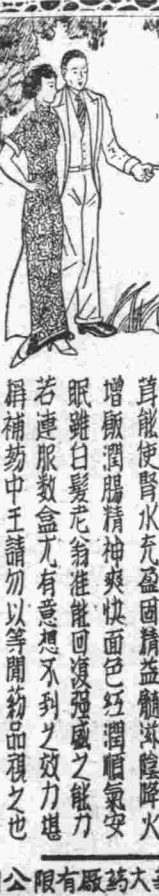 茸能使腎水充盈固精益髓滋陰降火
增飯潤腸精神爽快面色紅潤順氣安
眠雖白髮老翁准能回復强盛之能力
若連服数盒尤有意想不到之效力堪
稱補葯中王請勿以等閒葯品視之也
公限有厰葯大